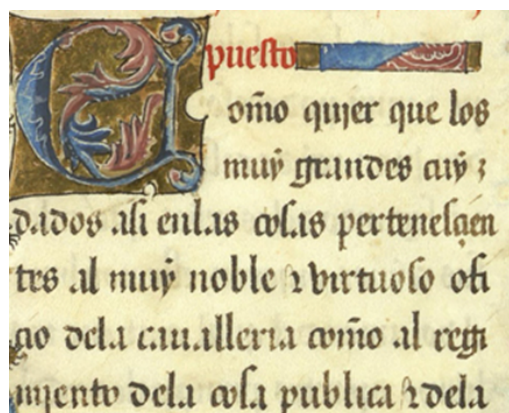 puesto
Como quier que los
muy grandes cuy
dados asi enlas cosas pertenesçien
tes al muy noble & virtuoso ofi
çio dela caualleria como al regi
miento dela cosa publica & dela